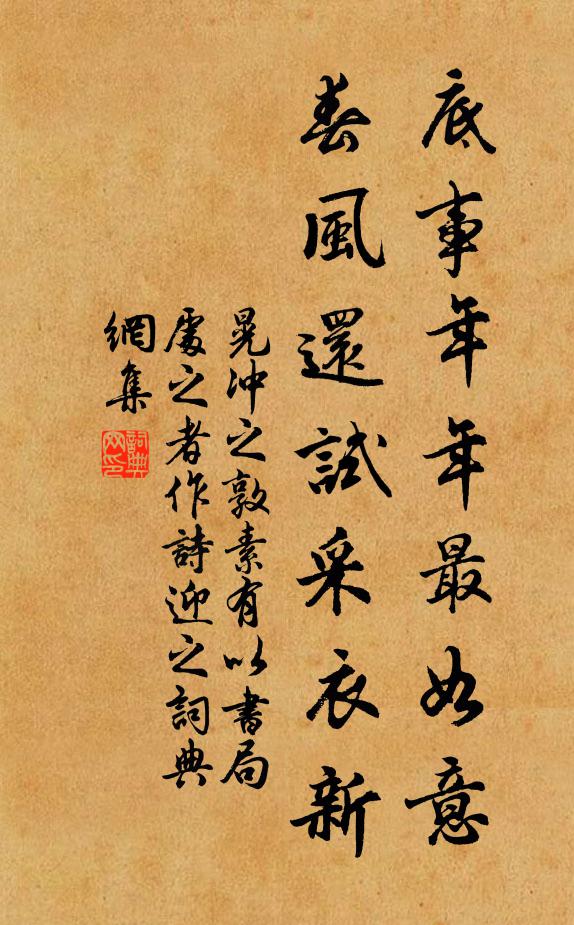 底事年年最如意
春風還試采衣新
晁沖之敦素有以書局
處之者作詩迎之詞典
網集
詞典
网印